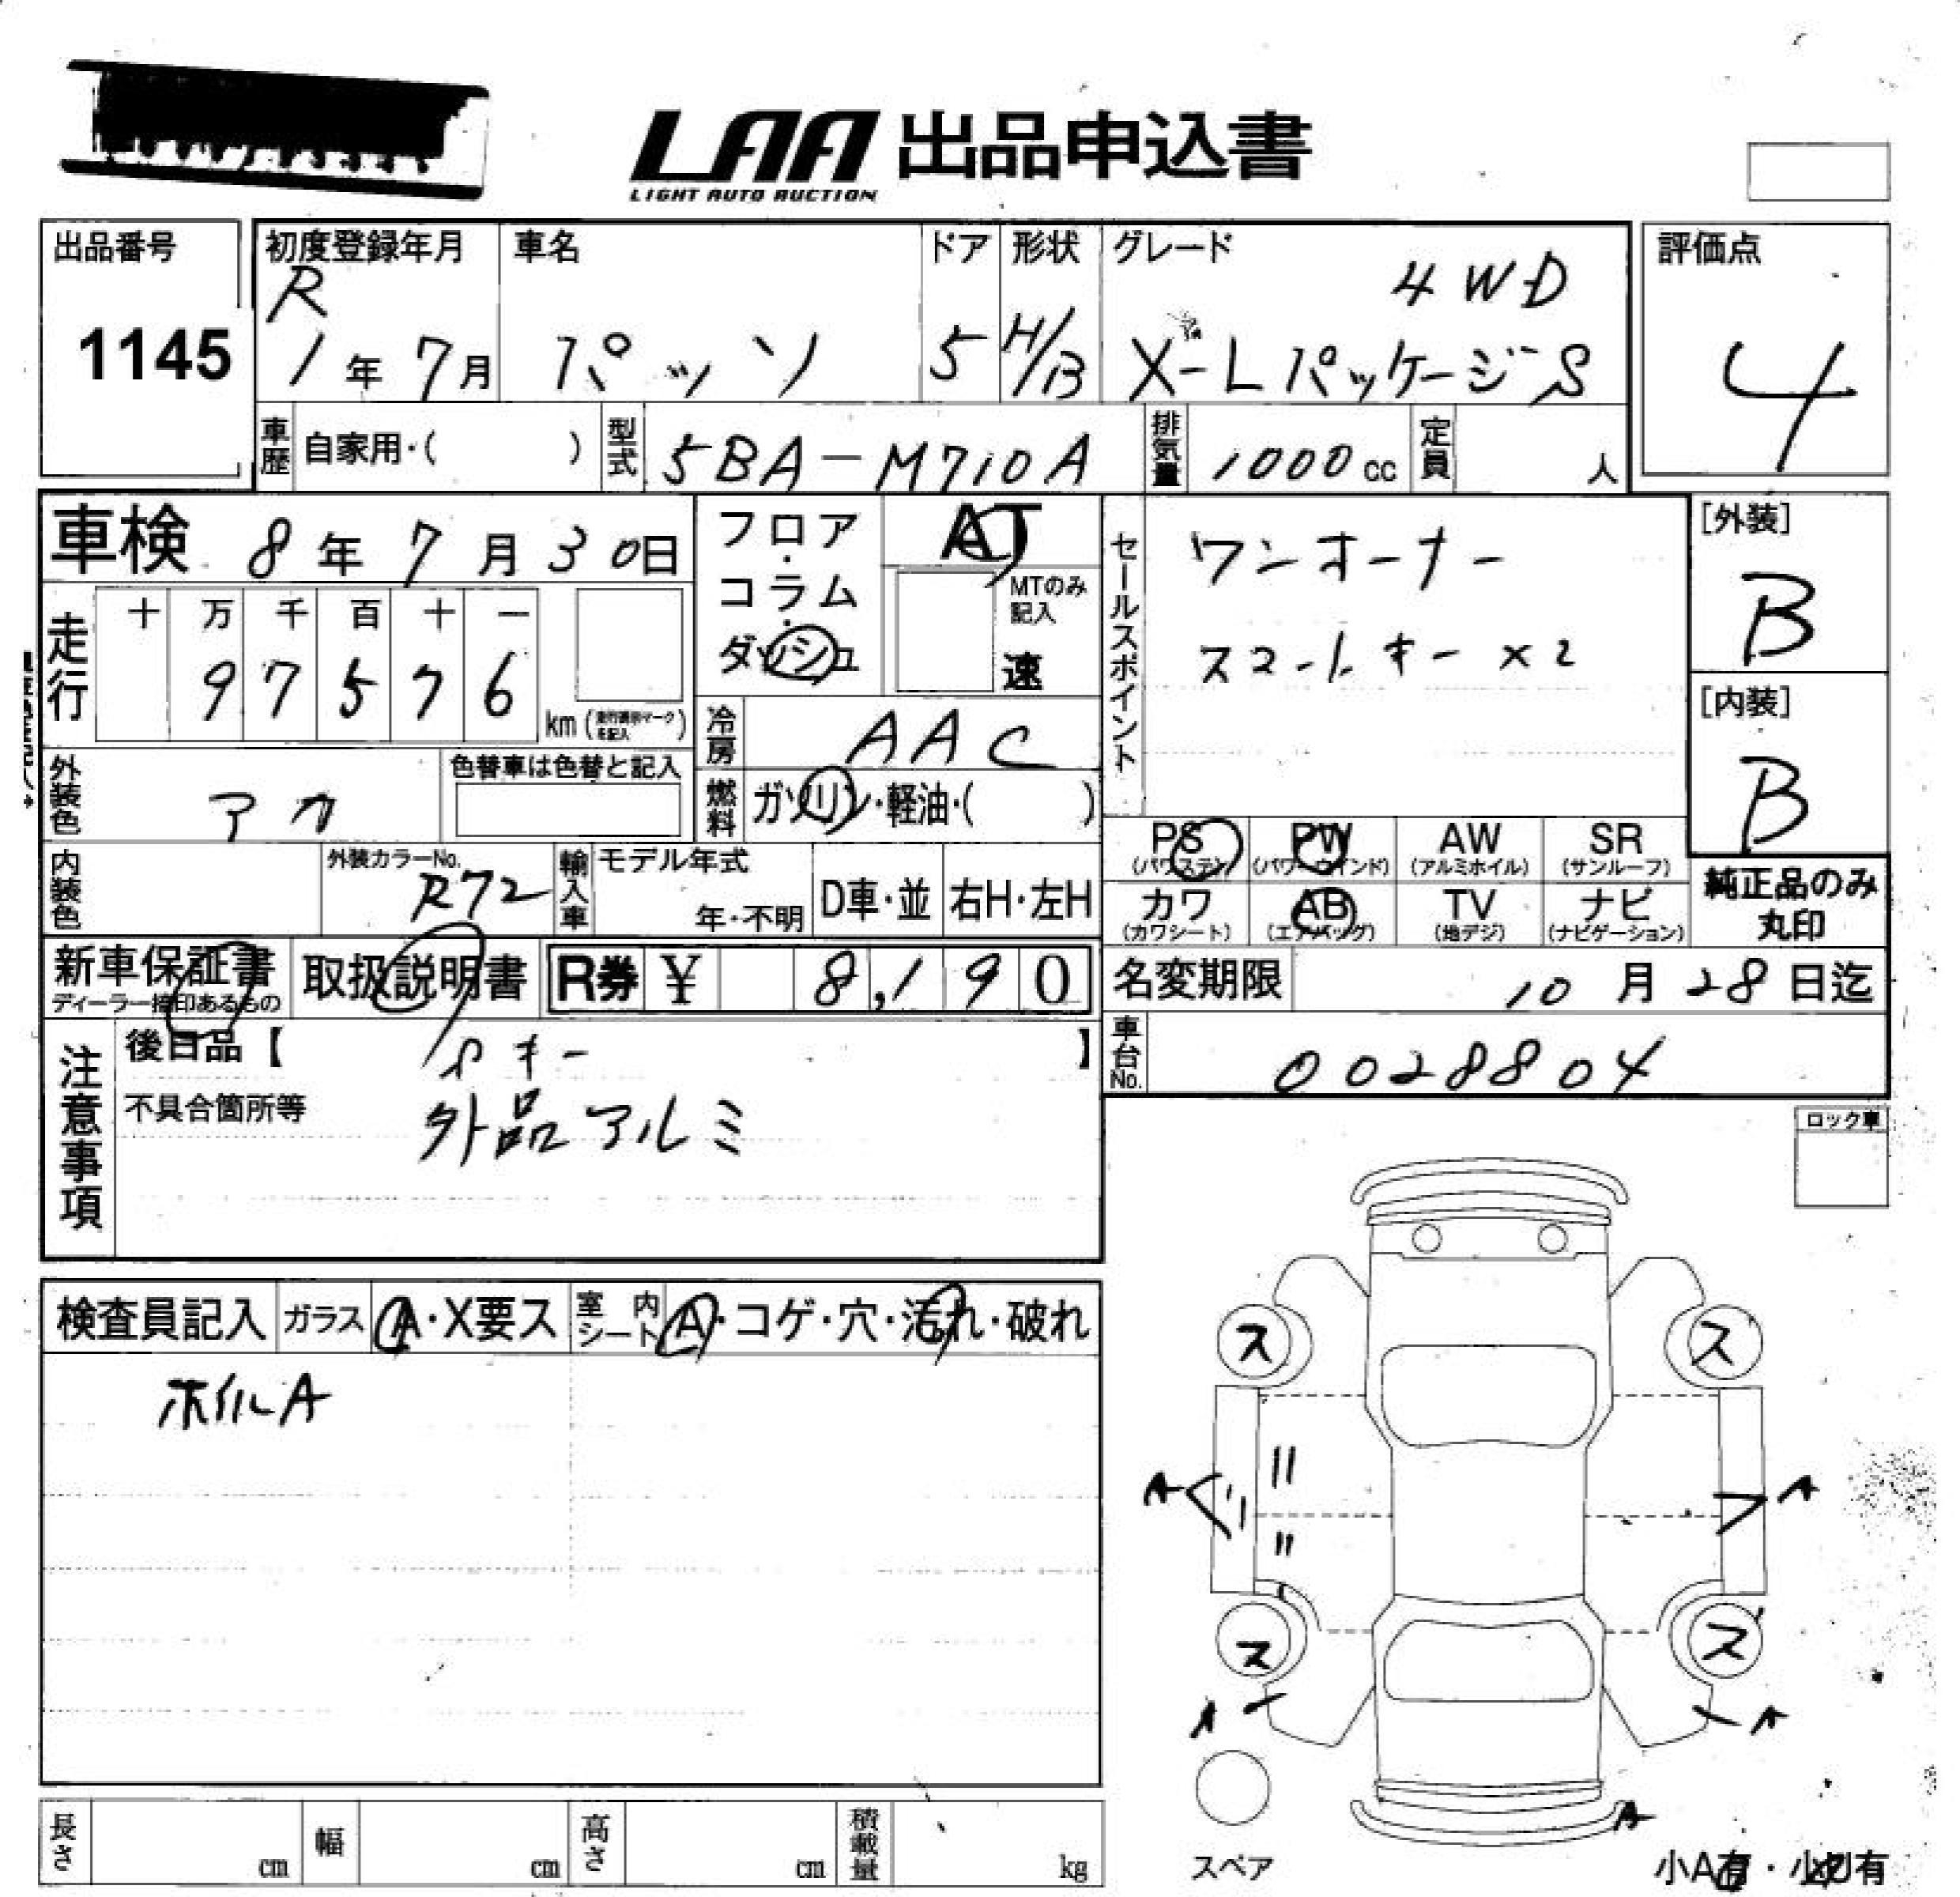 LAA 出品申込書
LIGHT AUTO AUCTION
出品番号
1145
初度登録年月
R
1年7月
車名
パッソ
ドア
5
形状
H/B
グレード
4WD
X-Lパッケージ S
評価点
4
車歴 自家用・( )
型式 5BA-M710A
排気量 1000cc
定員 人
車検 8年7月30日
フロア・コラム・ダッシュ
AT
MTのみ記入
速
セールスポイント
ワンオーナー
スマートキー×2
[外装]
B
[内装]
B
走行
十 万 千 百 十 一
9 7 5 7 6
km
冷房 AAC
外装色 アカ
色替車は色替と記入
燃料 ガソリン・軽油・( )
PS (パワステ)
PW (パワーウインド)
AW (アルミホイル)
SR (サンルーフ)
カワ (カワシート)
AB (エアバッグ)
TV (地デジ)
ナビ (ナビゲーション)
純正品のみ丸印
内装色
外装カラーNo. R72
輸入車 モデル年式
年・不明
D車・並
右H・左H
新車保証書
ディーラー捺印あるもの
取扱説明書
R券 ¥ 8,190
名変期限 10月28日迄
車台No. 0028804
注意事項
後日品【 キー 】
不具合箇所等 外品アルミ
ロック車
検査員記入
ガラス A・X要ス
室内シート A・コゲ・穴・汚れ・破れ
ホイルA
ス ス
A A
ス ス
A A
A
スペア
小A有・小U有
長さ cm
幅 cm
高さ cm
積載量 kg